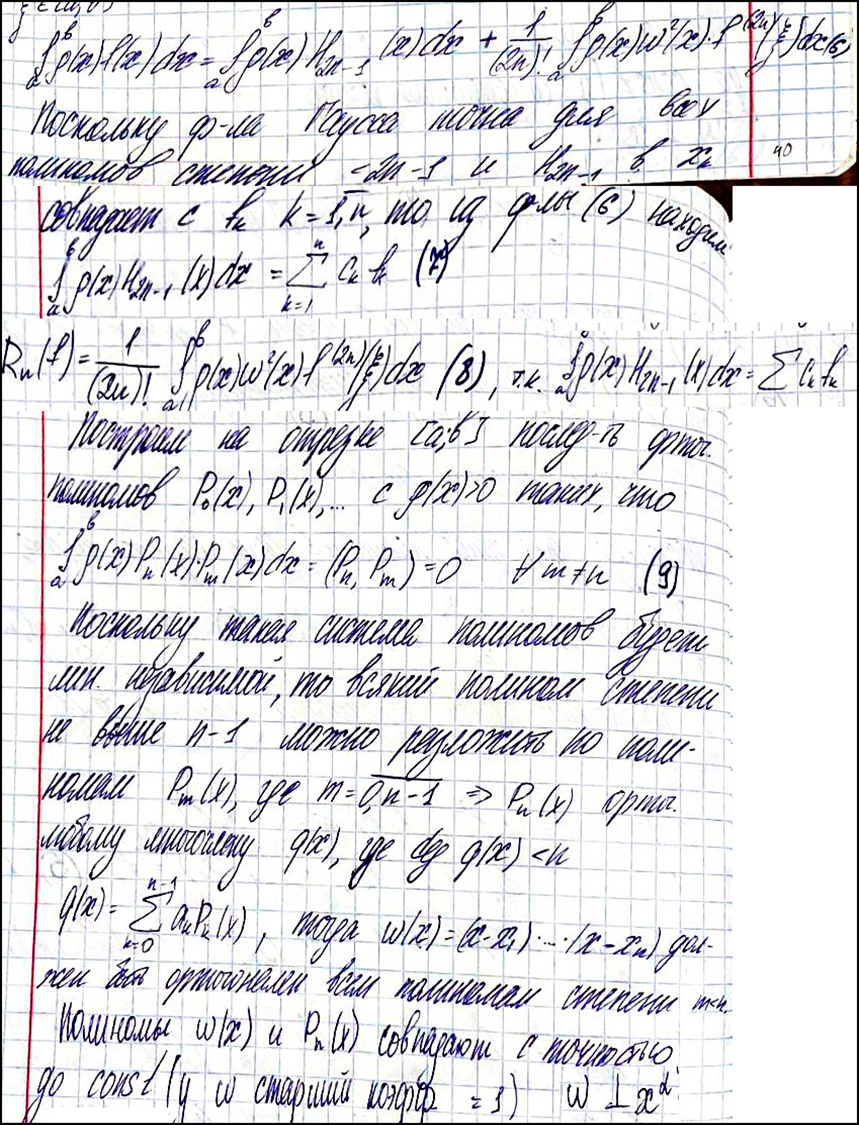 ξ ∈ (a, b)
∫ₐᵇ ρ(x) f(x) dx = ∫ₐᵇ ρ(x) H₂ₙ₋₁(x) dx + 1/(2n)! ∫ₐᵇ ρ(x) ω²(x) · f⁽²ⁿ⁾(ξ) dx (6)
Поскольку ф-ла Гаусса точна для всех
полиномов степени ≤ 2n-1 и H₂ₙ₋₁ в xₖ
40
совпадает с fₖ k = 1,n, то из ф-лы (6) находим
∫ₐᵇ ρ(x) H₂ₙ₋₁(x) dx = ∑ₖ₌₁ⁿ cₖ fₖ (7)
Rₙ(f) = 1/(2n)! ∫ₐᵇ ρ(x) ω²(x) f⁽²ⁿ⁾(ξ) dx (8), т.к. ∫ρ(x) H₂ₙ₋₁(x) dx = ∑ cₖ fₖ
Построим на отрезке [a; b] послед-ть ортог.
полиномов P₀(x), P₁(x), ... с ρ(x)>0 таких, что
∫ₐᵇ ρ(x) Pₙ(x)·Pₘ(x) dx = (Pₙ, Pₘ) = 0 ∀ m ≠ n (9)
Поскольку такая система полиномов будет
лин. независимой, то всякий полином степени
не выше n-1 можно разложить по поли-
номам Pₘ(x), где m = 0,n-1 ⇒ Pₙ(x) ортог.
любому многочлену q(x), где deg q(x) < n
q(x) = ∑ₖ₌₀ⁿ⁻¹ aₖPₖ(x), тогда ω(x) = (x-x₁)·...·(x-xₙ) дол-
жен быть ортогонален всем полиномам степени m<n.
Полиномы ω(x) и Pₙ(x) совпадают с точностью
до const (у ω старший коэфф = 1) ω ⊥ x^α